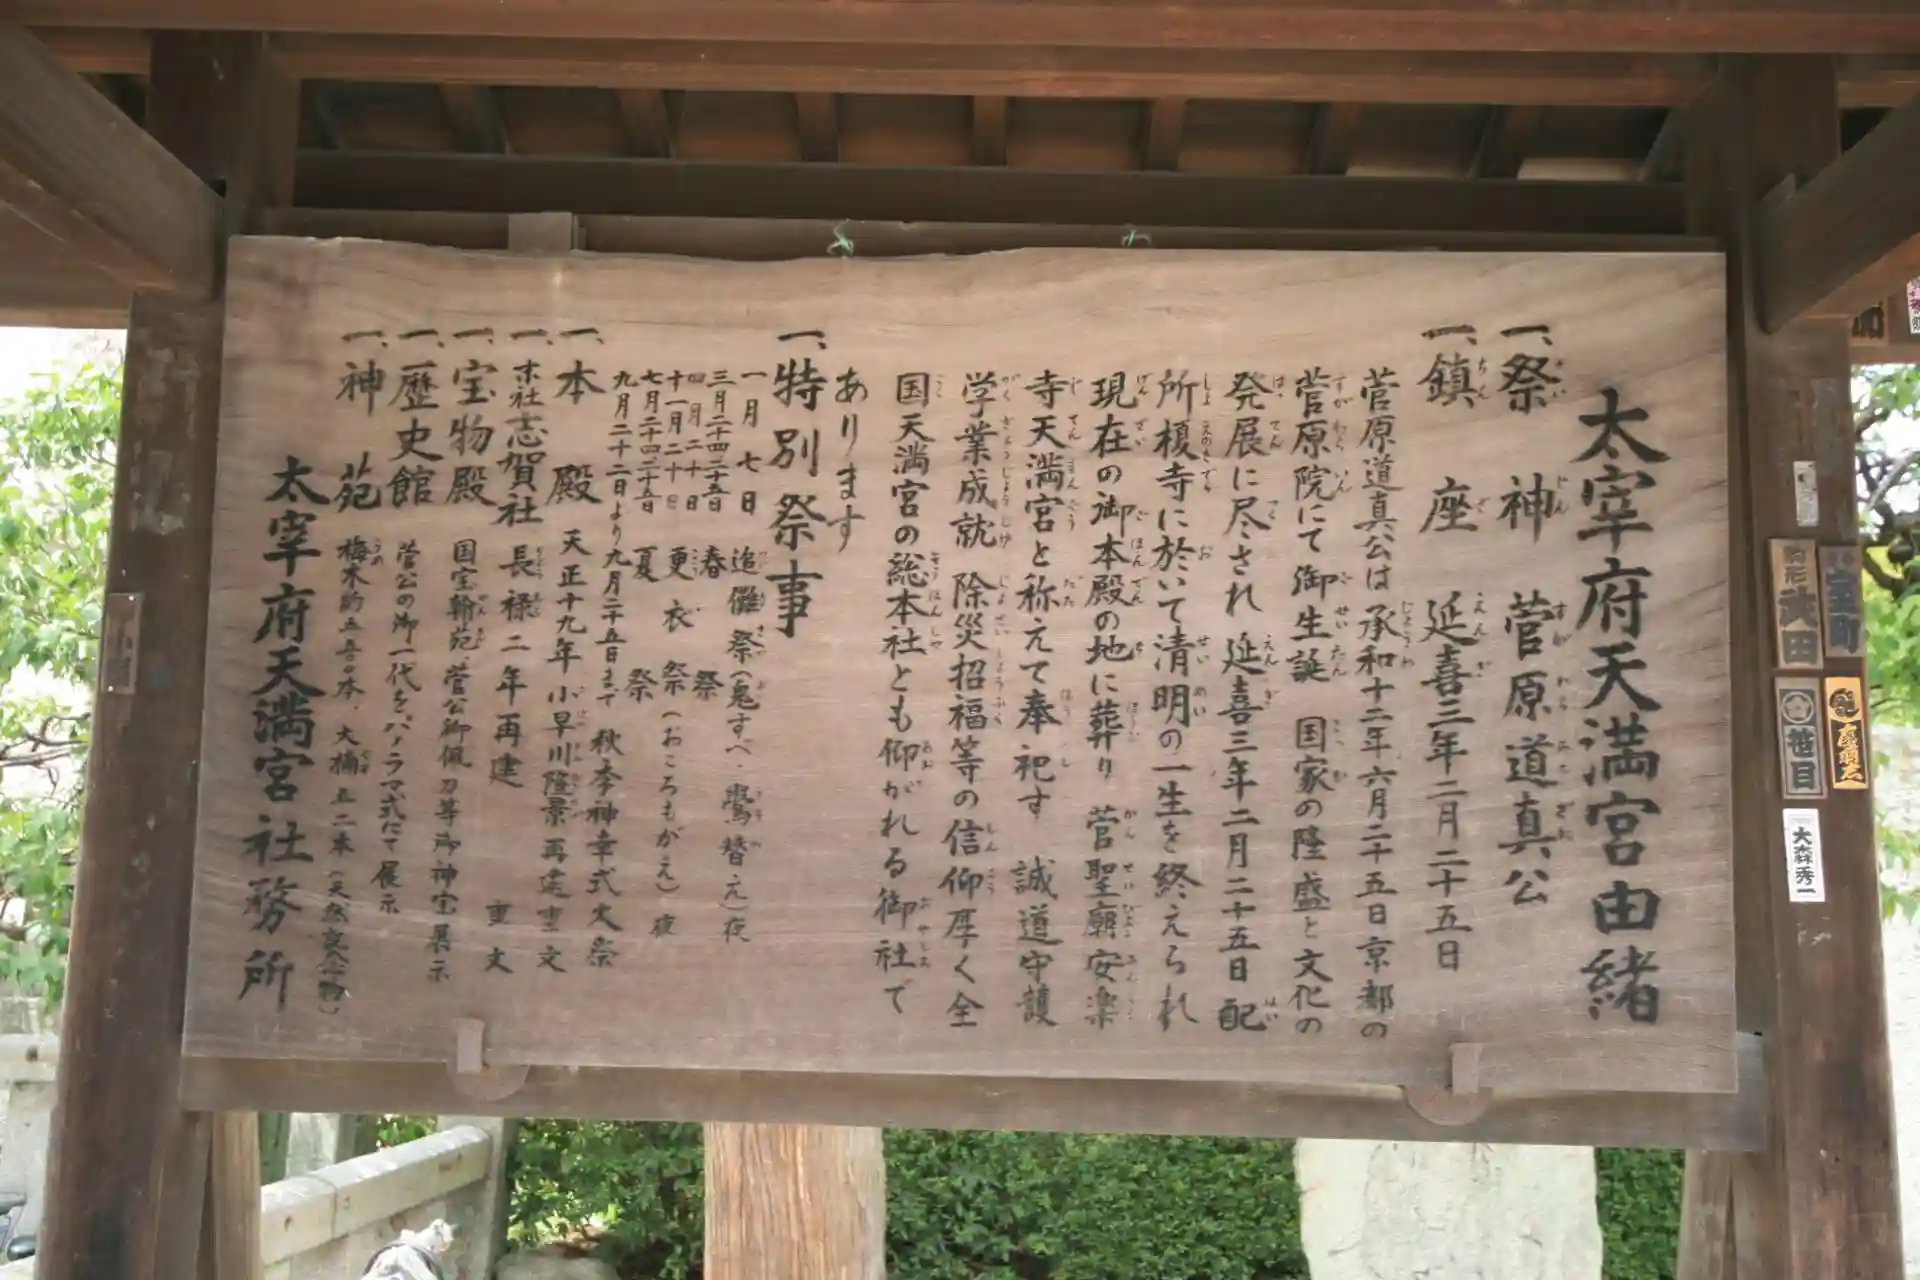 太宰府天満宮由緒
一、祭神 菅原道真公
一、鎮座 延喜三年二月二十五日
菅原道真公は承和十二年六月二十五日京都の
菅原院にて御生誕 国家の隆盛と文化の
発展に尽され 延喜三年二月二十五日 配
所榎寺に於いて清明の一生を終えられ
現在の御本殿の地に葬り 菅聖廟安楽
寺天満宮と称えて奉祀す 誠道守護
学業成就 除災招福等の信仰厚く全
国天満宮の総本社とも仰がれる御社で
あります
一、特別祭事
一月七日 追儺祭(鬼すべ・鷽替え)夜
三月二十四二十五日 春祭
四月二十日
十一月二十日 更衣祭(おころもがえ)夜
七月二十四二十五日 夏祭
九月二十二日より九月二十五日まで 秋季神幸式大祭
一、本殿 天正十九年 小早川隆景再建 重文
一、末社志賀社 長禄二年再建 重文
一、宝物殿 国宝翰苑、菅公御佩刀等御神宝展示
一、歴史館 菅公の御一代をパノラマ式にて展示
一、神苑 梅木約五千本、大樟五二本(天然記念物)
太宰府天満宮社務所
室町
武田
笹目
大森秀一